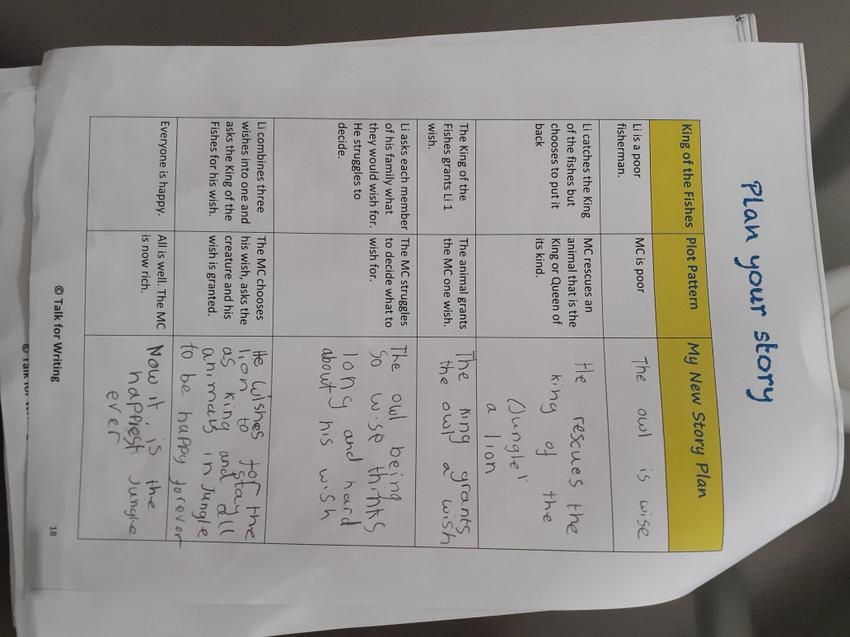 Plan your story
King of the Fishes
Plot Pattern
My New Story Plan
Li is a poor
fisherman.
MC is poor
The owl is wise
Li catches the King
of the fishes but
chooses to put it
back
MC rescues an
animal that is the
King or Queen of
its kind.
He rescues the
king of the
Jungle'
a lion
The King of the
Fishes grants Li 1
wish.
The animal grants
the MC one wish.
The king grants
the owl a wish
Li asks each member
of his family what
they would wish for.
He struggles to
decide.
The MC struggles
to decide what to
wish for.
The owl being
so wise thinks
long and hard
about his wish
Li combines three
wishes into one and
asks the King of the
Fishes for his wish.
The MC chooses
his wish, asks the
creature and his
wish is granted.
He wishes for the
lion to stay
as king and all
animals in Jungle
to be happy forever
Everyone is happy.
All is well. The MC
is now rich.
Now it is the
happiest Jungle
ever
© Talk for Writing
18